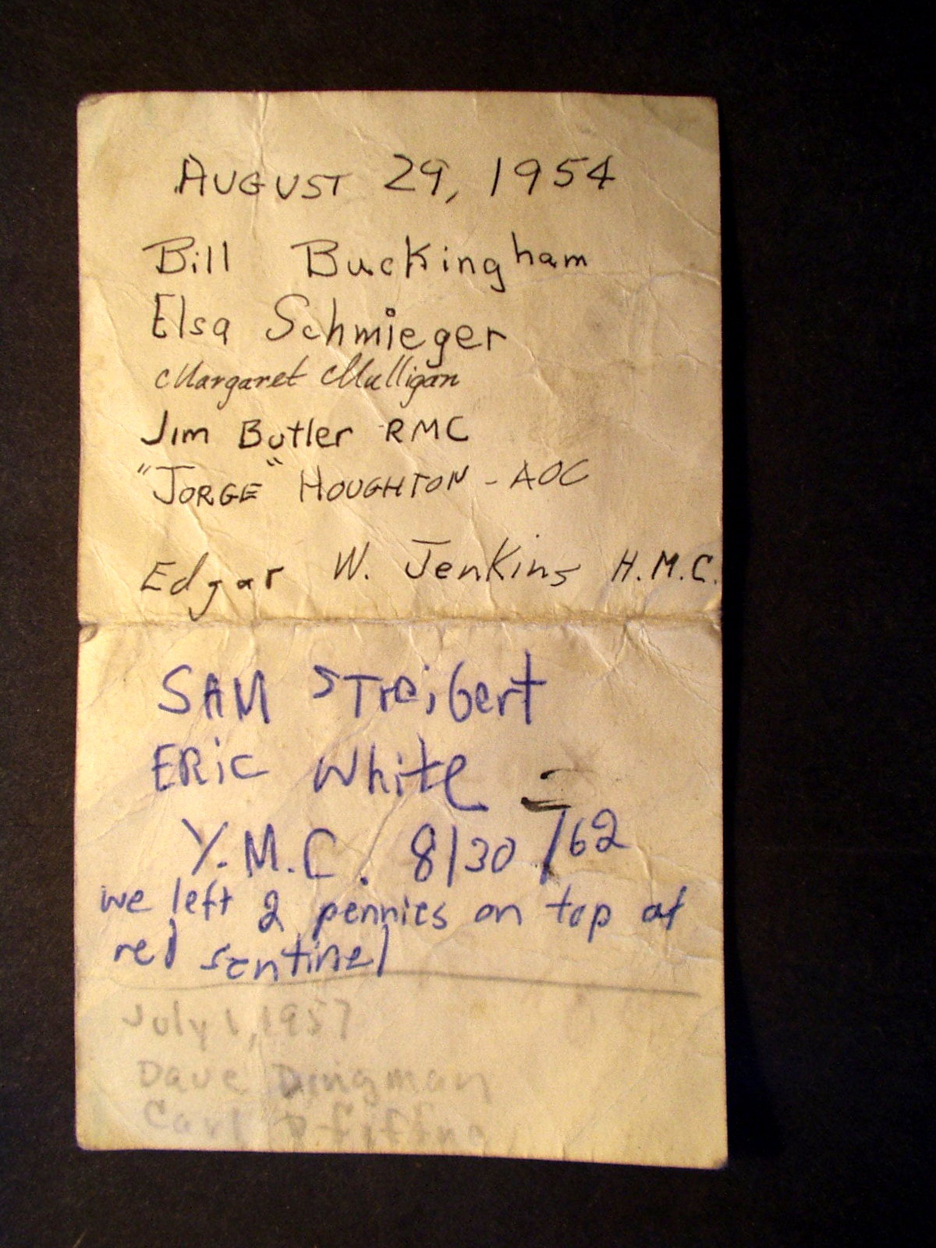 AUGUST 29, 1954
Bill Buckingham
Elsa Schmieger
Margaret Mulligan
Jim Butler RMC
"JORGE" HOUGHTON - AOC
Edgar W. Jenkins H.M.C.
SAM STreibert
ERic White
Y.M.C. 8/30/62
we left 2 pennies on top of
red sentinel
July 1, 1957
Dave Dingman
Carl